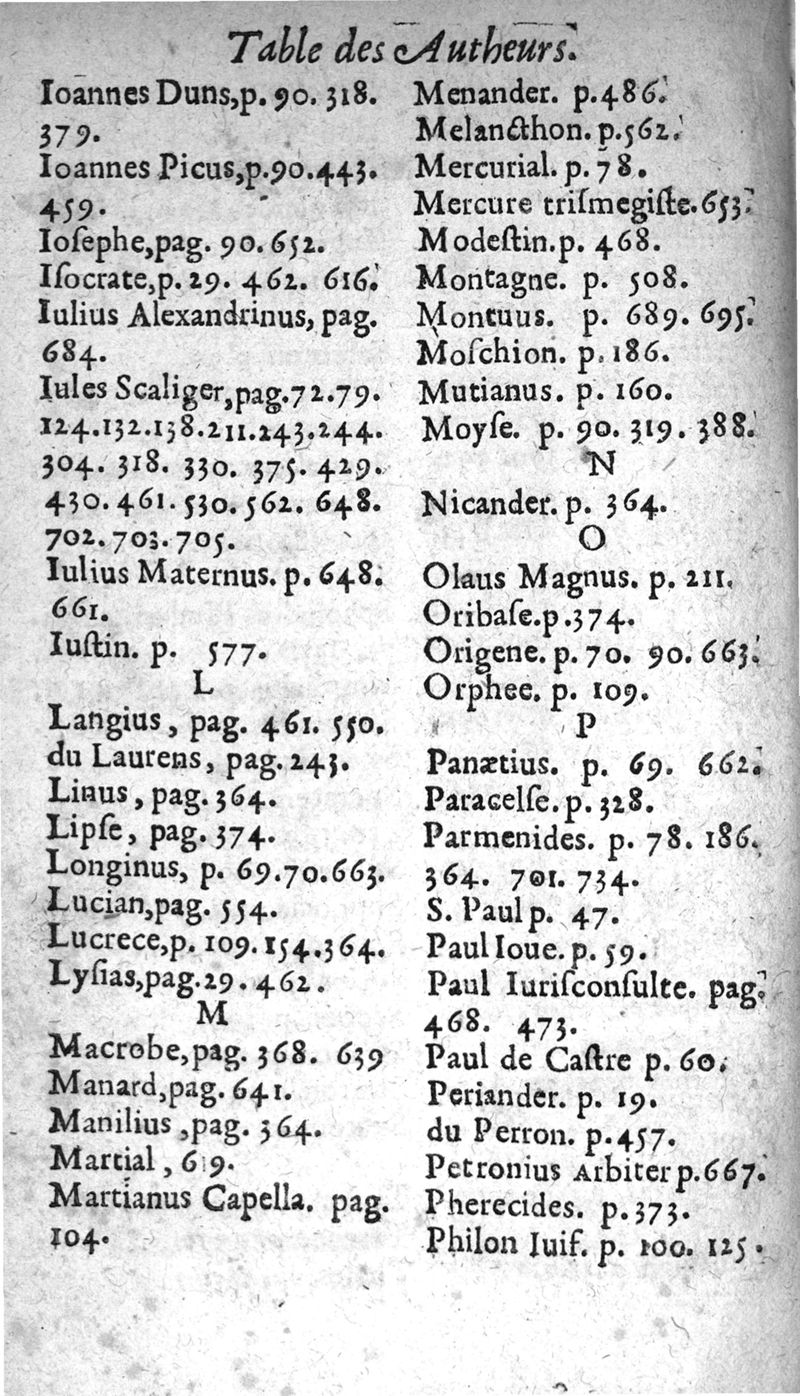 Table des Autheurs.
Ioannes Duns,p. 90. 318.
379.
Ioannes Picus,p.90.443.
459.
Iosephe,pag. 90. 652.
Iſocrate,p. 29. 462. 616.
Iulius Alexandrinus, pag.
684.
Iules Scaliger,pag.72.79.
124.132.138.211.243.244.
304. 318. 330. 375. 429.
430. 461. 530. 562. 648.
702. 703. 705.
Iulius Maternus. p. 648.
661.
Iuſtin. p. 577.
L
Langius, pag. 461. 550.
du Laurens, pag. 243.
Linus, pag. 364.
Lipſe, pag. 374.
Longinus, p. 69.70.663.
Lucian,pag. 554.
Lucrece,p. 109. 154.364.
Lyſias,pag.29. 462.
M
Macrobe,pag. 368. 639
Manard,pag. 641.
Manilius ,pag. 364.
Martial, 619.
Martianus Capella. pag.
104.
Menander. p.486.
Melancthon. p.562.
Mercurial. p. 78.
Mercure triſmegiſte.653.
Modeſtin.p. 468.
Montagne. p. 508.
Montuus. p. 689. 695.
Moſchion. p. 186.
Mutianus. p. 160.
Moyſe. p. 90. 319. 388.
N
Nicander. p. 364.
O
Olaus Magnus. p. 211.
Oribaſe.p.374.
Origene. p. 70. 90. 663.
Orphee. p. 109.
P
Panætius. p. 69. 662.
Paracelſe.p. 328.
Parmenides. p. 78. 186.
364. 701. 734.
S. Paul p. 47.
Paul Ioue. p. 59.
Paul Iuriſconſulte. pag.
468. 473.
Paul de Caſtre p. 60.
Periander. p. 19.
du Perron. p.457.
Petronius Arbiter p.667.
Pherecides. p.373.
Philon Iuif. p. 100. 125.